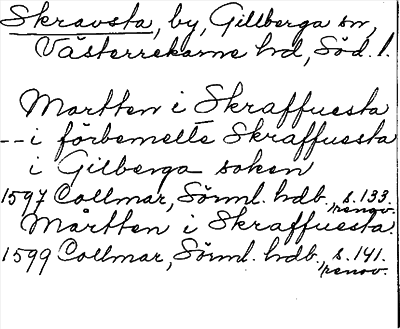 Skravsta, by, Gillberga sn,
Västerrekarne hd, Söd. l.
Mårtten i Skraffuesta
-- i förbemelte Skraffuesta
i Gilberga soken
1597 Collmar, Sörml. hdb., s. 133.
renov.
Mårtten i Skraffuesta
1599 Collmar, Sörml. hdb., s. 141.
renov.